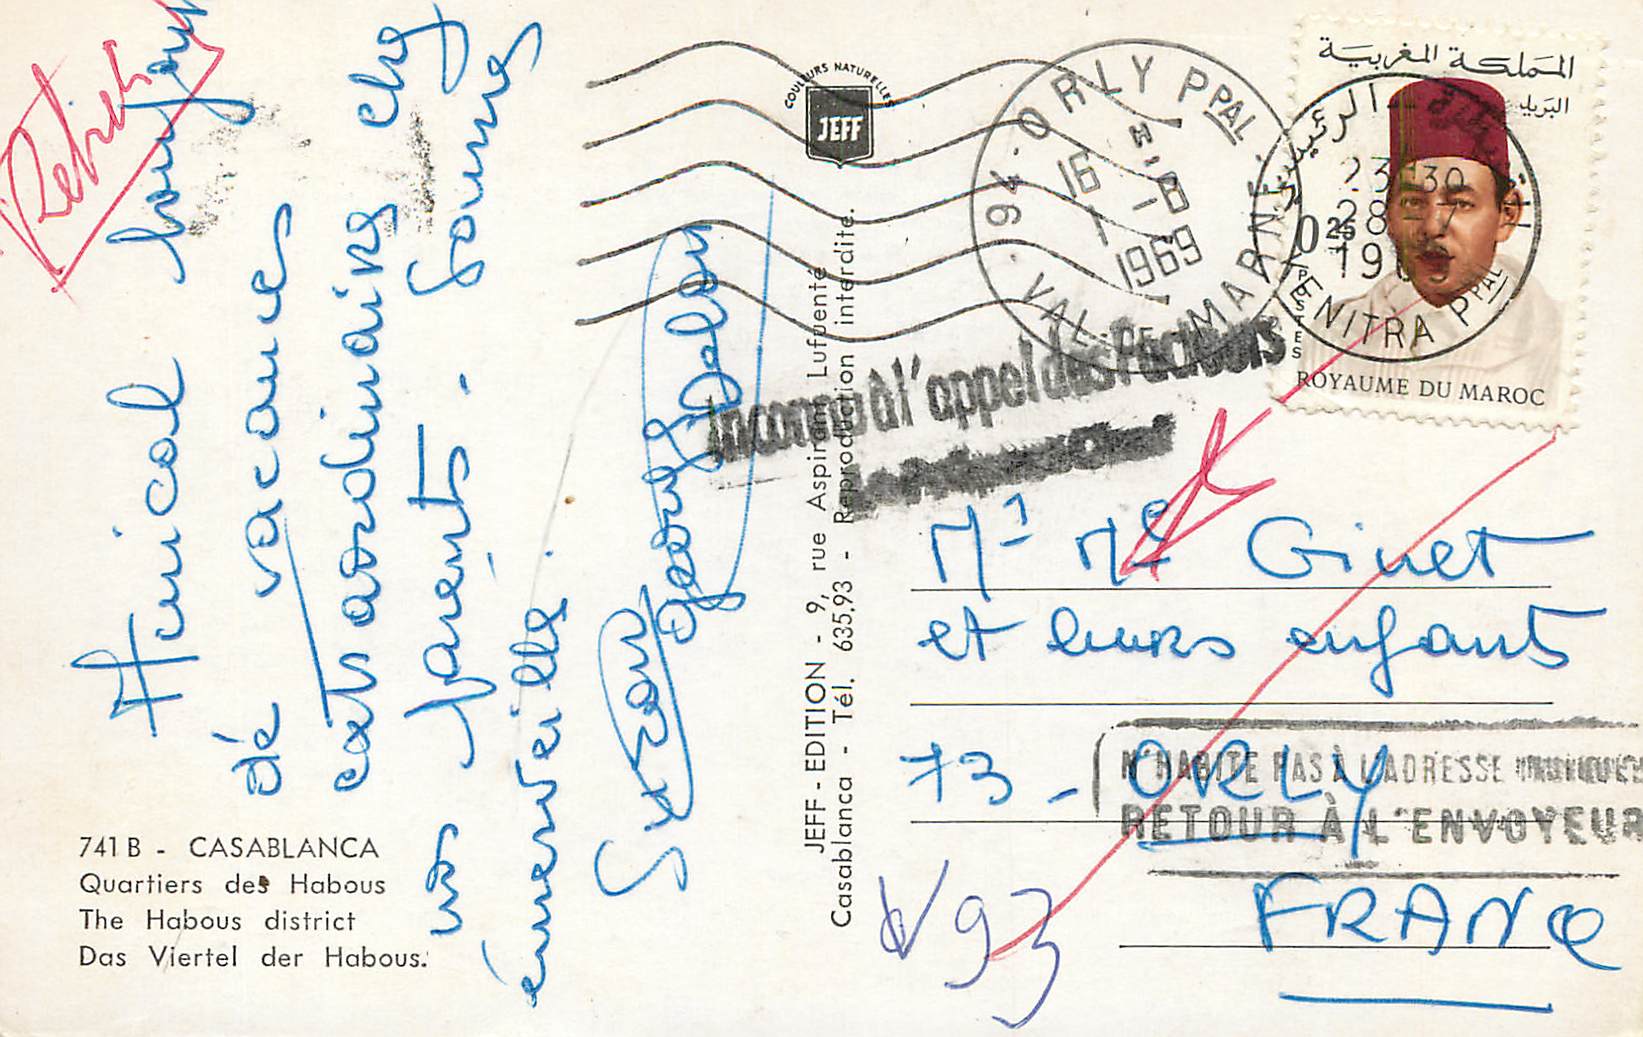 Amical bonjour
de vacances
extraordinaires chez
vos parents. Sommes
émerveillés.
Retour
741 B - CASABLANCA
Quartiers des Habous
The Habous district
Das Viertel der Habous.
COULEURS NATURELLES
JEFF
JEFF - EDITION - 9, rue Aspirant Lufuenté
Casablanca - Tél. 635.93 - Reproduction interdite.
94 - ORLY PPAL
16 H.
1 - 8
1969
VAL-DE-MARNE
المملكة المغربية
البريد
0,25
POSTES
ROYAUME DU MAROC
الرئيسي
23 H 30
28 - 7
196
KENITRA PPAL
Inconnu à l'appel des Facteurs
Mr Me Ginet
et leurs enfants
73 - ORLY
FRANCE
N'HABITE PAS À L'ADRESSE INDIQUÉE
RETOUR À L'ENVOYEUR
V 93